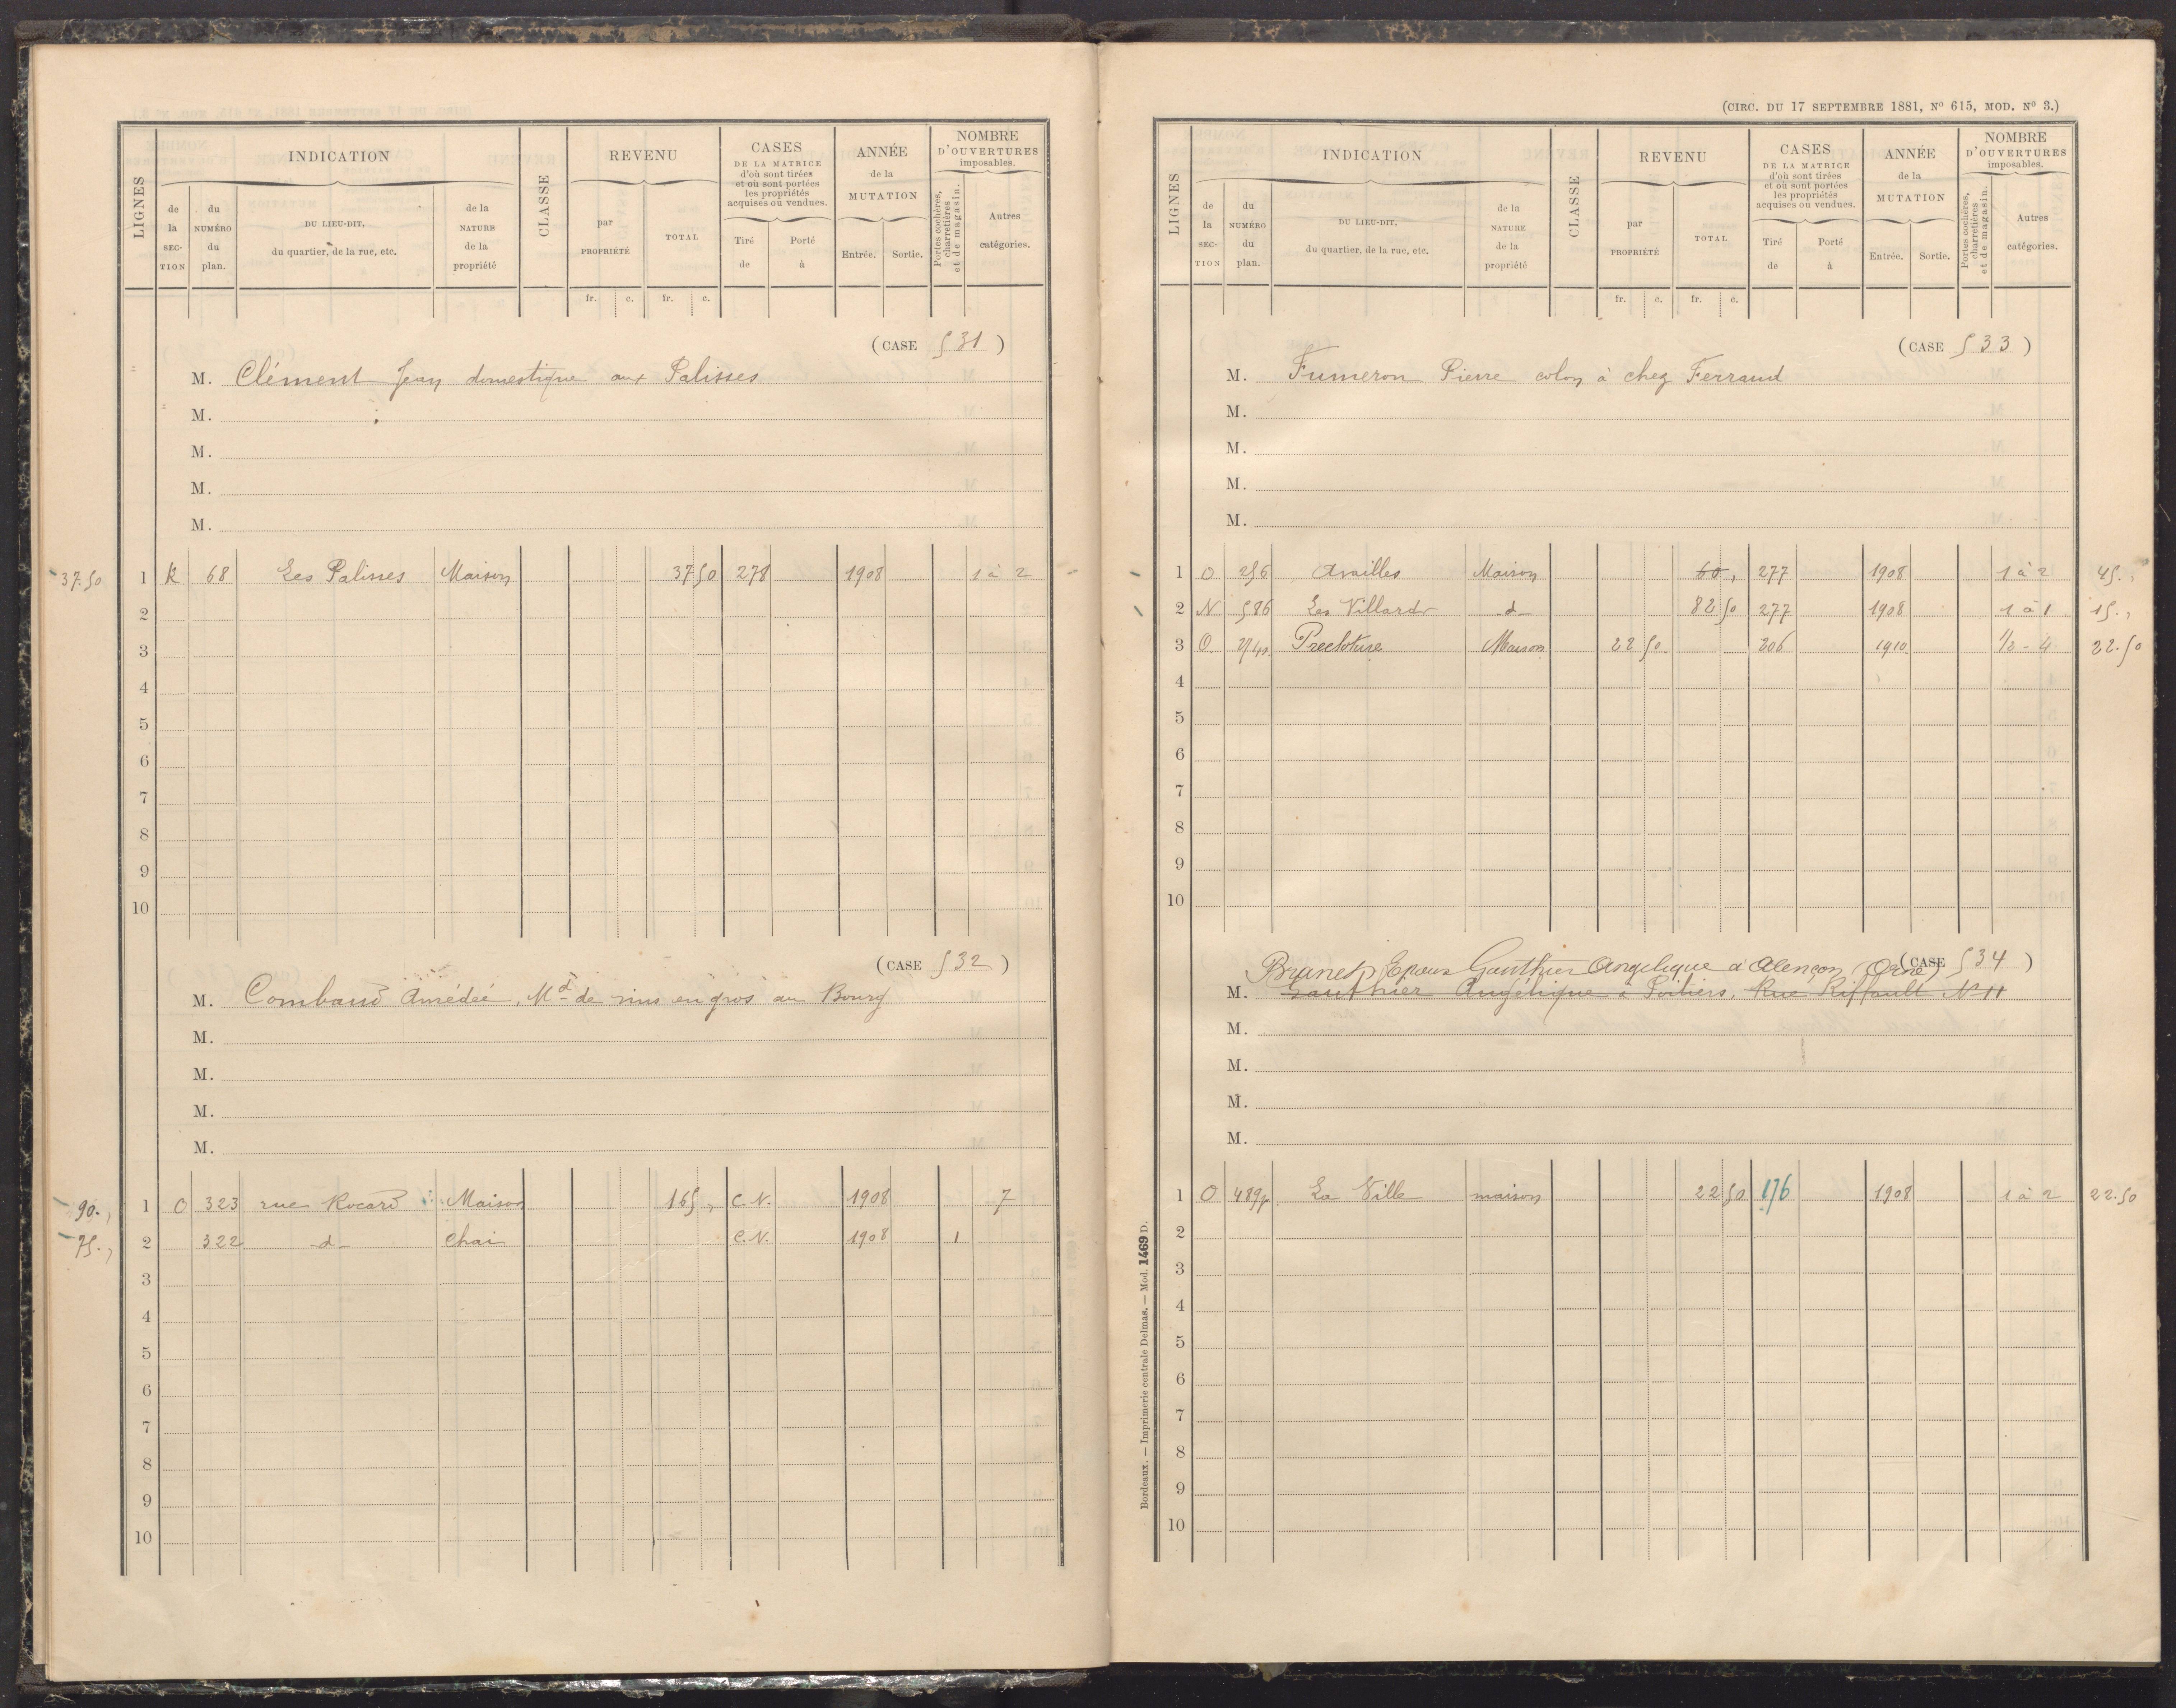 LIGNES
INDICATION
de la SECTION
du NUMÉRO du plan.
DU LIEU-DIT, du quartier, de la rue, etc.
de la NATURE de la propriété
CLASSE
REVENU
par PROPRIÉTÉ
TOTAL
fr. c. fr. c.
CASES DE LA MATRICE d'où sont tirées et où sont portées les propriétés acquises ou vendues.
Tiré de
Porté à
ANNÉE de la MUTATION
Entrée. Sortie.
NOMBRE D'OUVERTURES imposables.
Portes cochères, charretières et de magasin.
Autres catégories.
(CASE 531)
M. Clément Jean domestique aux Palisses
M.
M.
M.
M.
37.50 1 K 68 Les Palisses Maison 37 50 278 1908 1 à 2
2
3
4
5
6
7
8
9
10
(CASE 532)
M. Combaud Amédée, Md de vins en gros au Bourg
M.
M.
M.
M.
90., 1 O 323 rue Rocard Maison 165 , C.N. 1908 7
75., 2 322 -d- Chai C.N. 1908 1
3
4
5
6
7
8
9
10
(CIRC. DU 17 SEPTEMBRE 1881, No 615, MOD. No 3.)
LIGNES
INDICATION
de la SECTION
du NUMÉRO du plan.
DU LIEU-DIT, du quartier, de la rue, etc.
de la NATURE de la propriété
CLASSE
REVENU
par PROPRIÉTÉ
TOTAL
fr. c. fr. c.
CASES DE LA MATRICE d'où sont tirées et où sont portées les propriétés acquises ou vendues.
Tiré de
Porté à
ANNÉE de la MUTATION
Entrée. Sortie.
NOMBRE D'OUVERTURES imposables.
Portes cochères, charretières et de magasin.
Autres catégories.
(CASE 533)
M. Fumeron Pierre colon à chez Ferrand
M.
M.
M.
M.
1 O 256 Availles Maison 60, 277 1908 1 à 2 45.,
2 N 586 Les Villards d 82 50 277 1908 1 à 1 15.,
3 O Maison 22 50 206 1910 1/2 - 4 22.50
4
5
6
7
8
9
10
(CASE 534)
Brunet Epoux Gauthier Angelique à Alençon (Orne)
M. Gauthier Angélique à Poitiers, Rue Riffault No 11
M.
M.
M.
M.
1 O 489p La Ville maison 22 50 176 1908 1 à 2 22.50
2
3
4
5
6
7
8
9
10
Bordeaux. — Imprimerie centrale Delmas. — Mod. 1469 D.